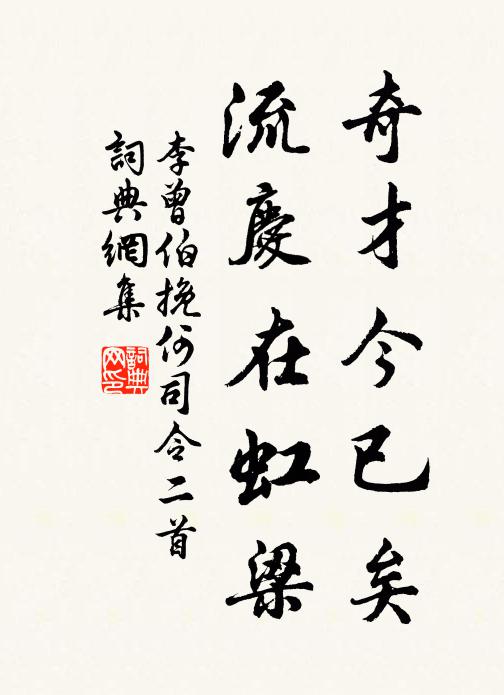 奇才今已矣
流慶在虹梁
李曾伯挽何司令二首
詞典網集
詞典網印